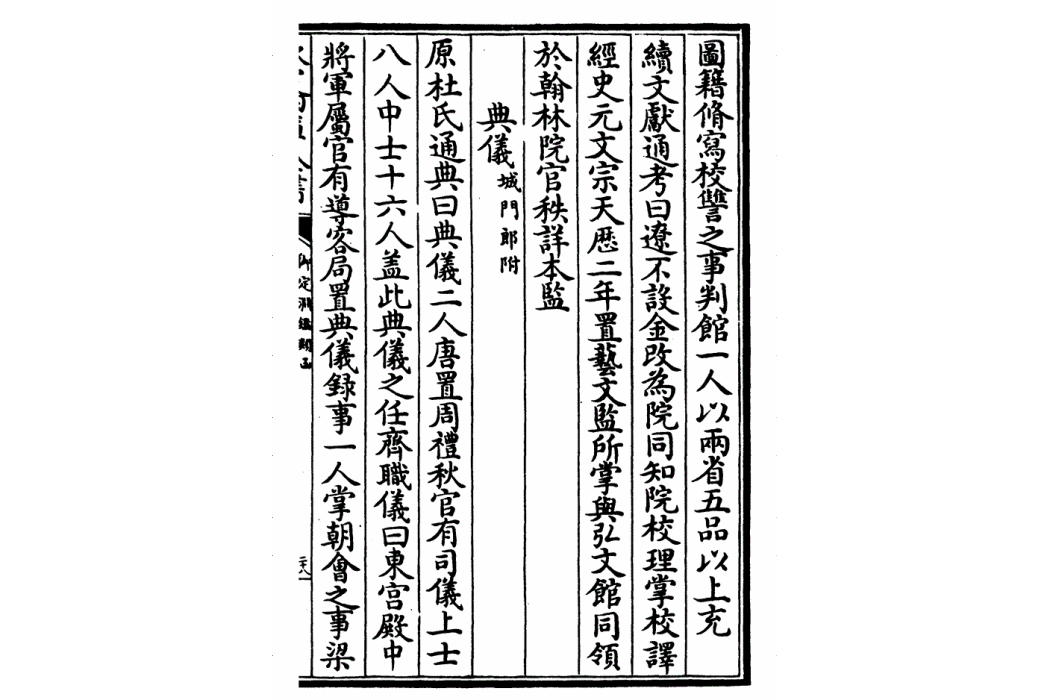 圖籍脩寫校讐之事判館一人以兩省五品以上充
續文獻通考曰遼不設金改為院同知院校理掌校譯
經史元文宗天厯二年置藝文監所掌與弘文館同領
於翰林院官秩詳本監
典儀城門郎附
原杜氏通典曰典儀二人唐置周禮秋官有司儀上士
八人中士十六人盖此典儀之任齊職儀曰東宫殿中
將軍屬官有導客局置典儀録事一人掌朝會之事梁
御定淵鑑類函